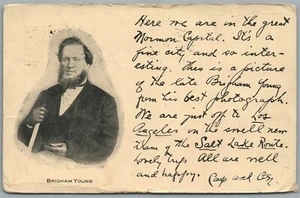 Here we are in the great
Mormon Capital. It's a
fine city and so inter-
esting. This is a picture
of the late Brigham Young
from his best photograph.
We are just off to Los
Angeles on the swell new
of the Salt Lake Route.
Lovely trip. All are well
and happy.
BRIGHAM YOUNG